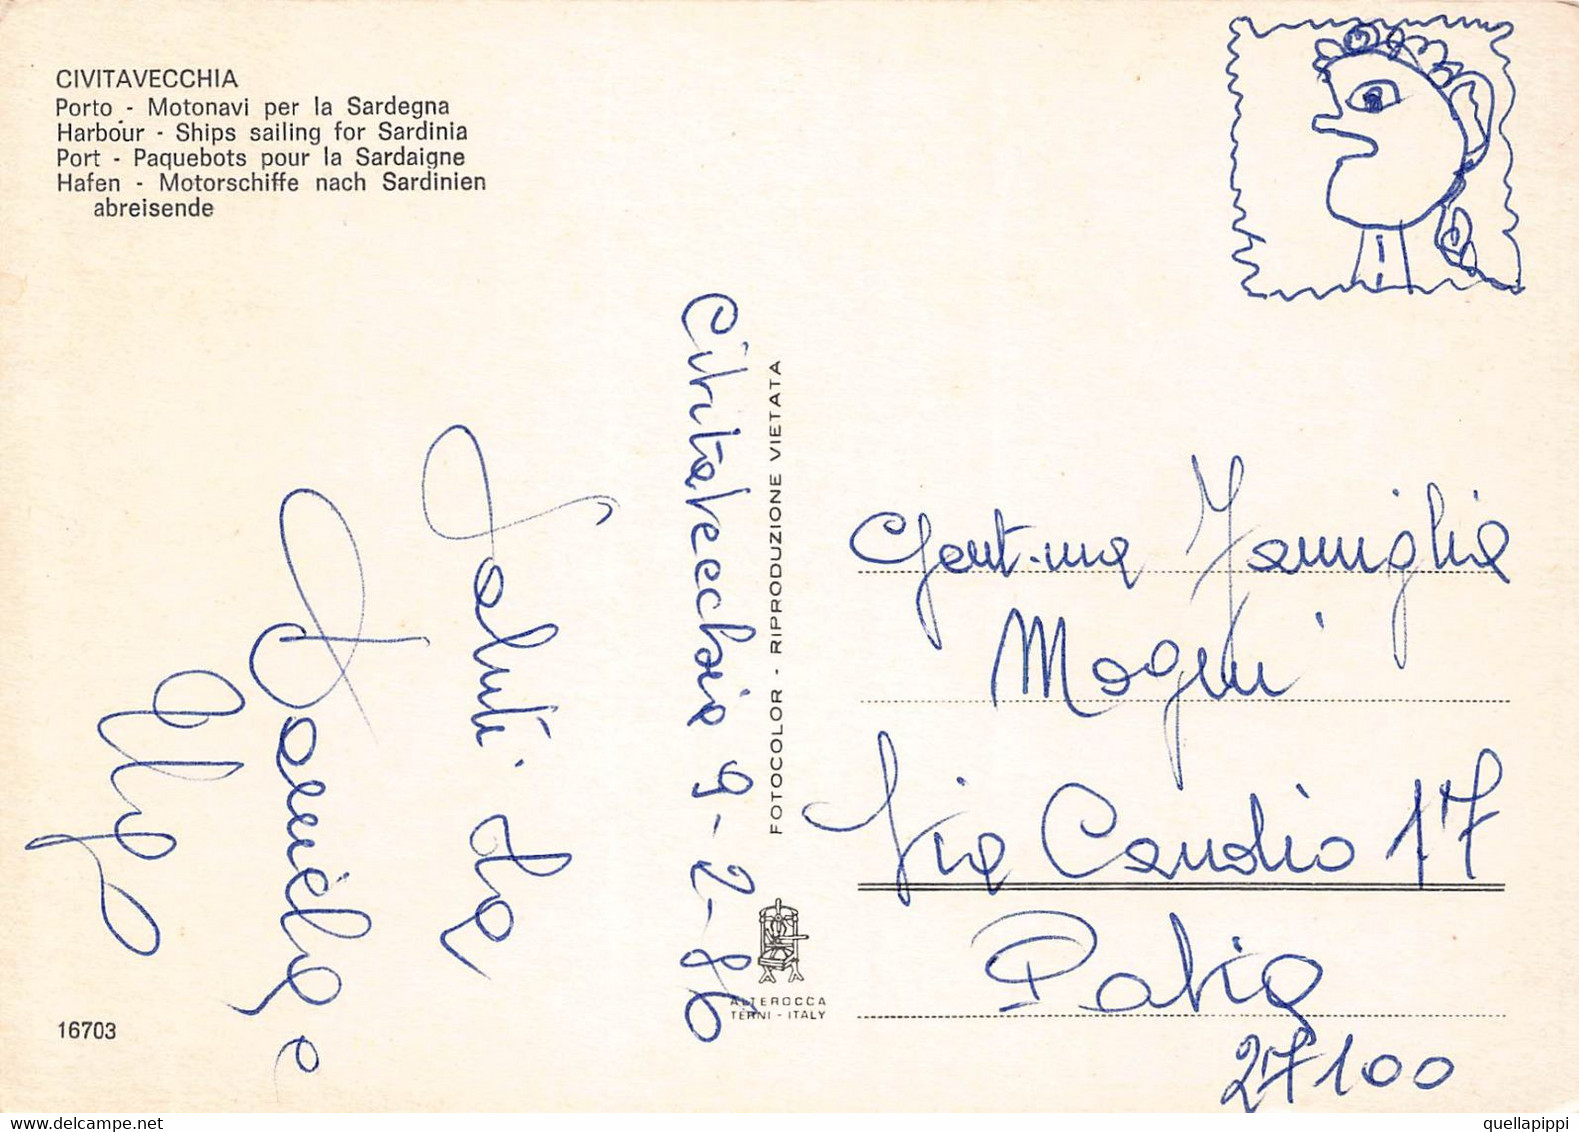 CIVITAVECCHIA
Porto - Motonavi per la Sardegna
Harbour - Ships sailing for Sardinia
Port - Paquebots pour la Sardaigne
Hafen - Motorschiffe nach Sardinien
abreisende
Civitavecchia 9-2-86
Saluti da
Daniela e
Ugo
FOTOCOLOR - RIPRODUZIONE VIETATA
Gent.ma Famiglia
Mogni
Via Candio 17
Pavia
27100
ALTEROCCA
TERNI - ITALY
16703
quellapippi